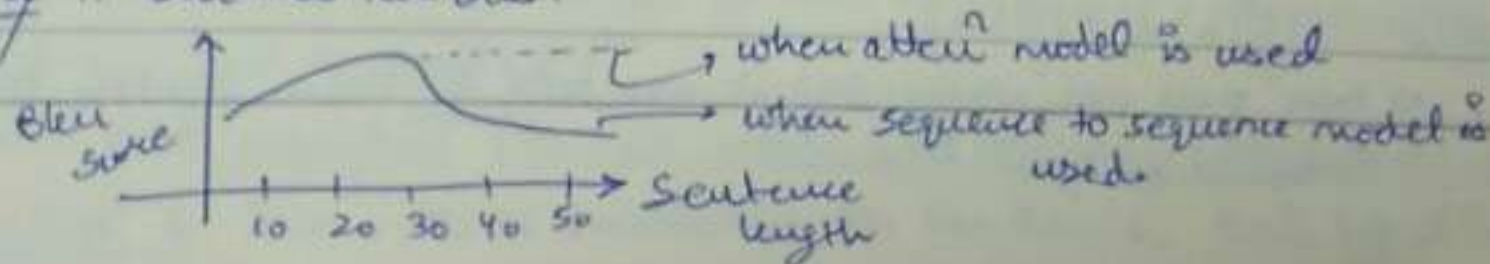 when attenⁿ model is used
Bleu score
when sequence to sequence model is used.
10 20 30 40 50
Sentence length